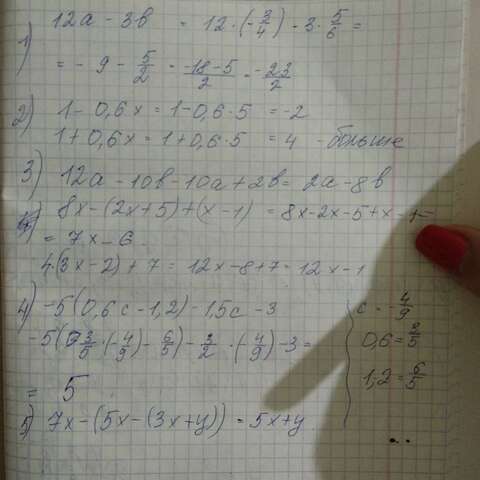 1) 12a - 3b = 12·(-3/4) - 3·5/6 =
= -9 - 5/2 = (-18-5)/2 = -23/2
2) 1 - 0,6x = 1 - 0,6·5 = -2
1 + 0,6x = 1 + 0,6·5 = 4 - больше
3) 12a - 10b - 10a + 2b = 2a - 8b
8x - (2x+5) + (x-1) = 8x - 2x - 5 + x - 1 =
= 7x - 6
4·(3x-2) + 7 = 12x - 8 + 7 = 12x - 1
4) -5(0,6c - 1,2) - 1,5c - 3
c = -4/9
-5(3/5·(-4/9) - 6/5) - 3/2·(-4/9) - 3 =
0,6 = 3/5
1,2 = 6/5
= 5
5) 7x - (5x - (3x+y)) = 5x + y